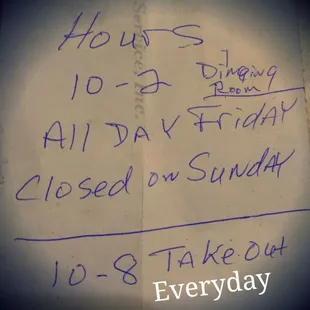 Service, Inc.
Hours
10-2 Dinging Room
All DAY FridAY
Closed on SundAY
10-8 TAKe out
Everyday